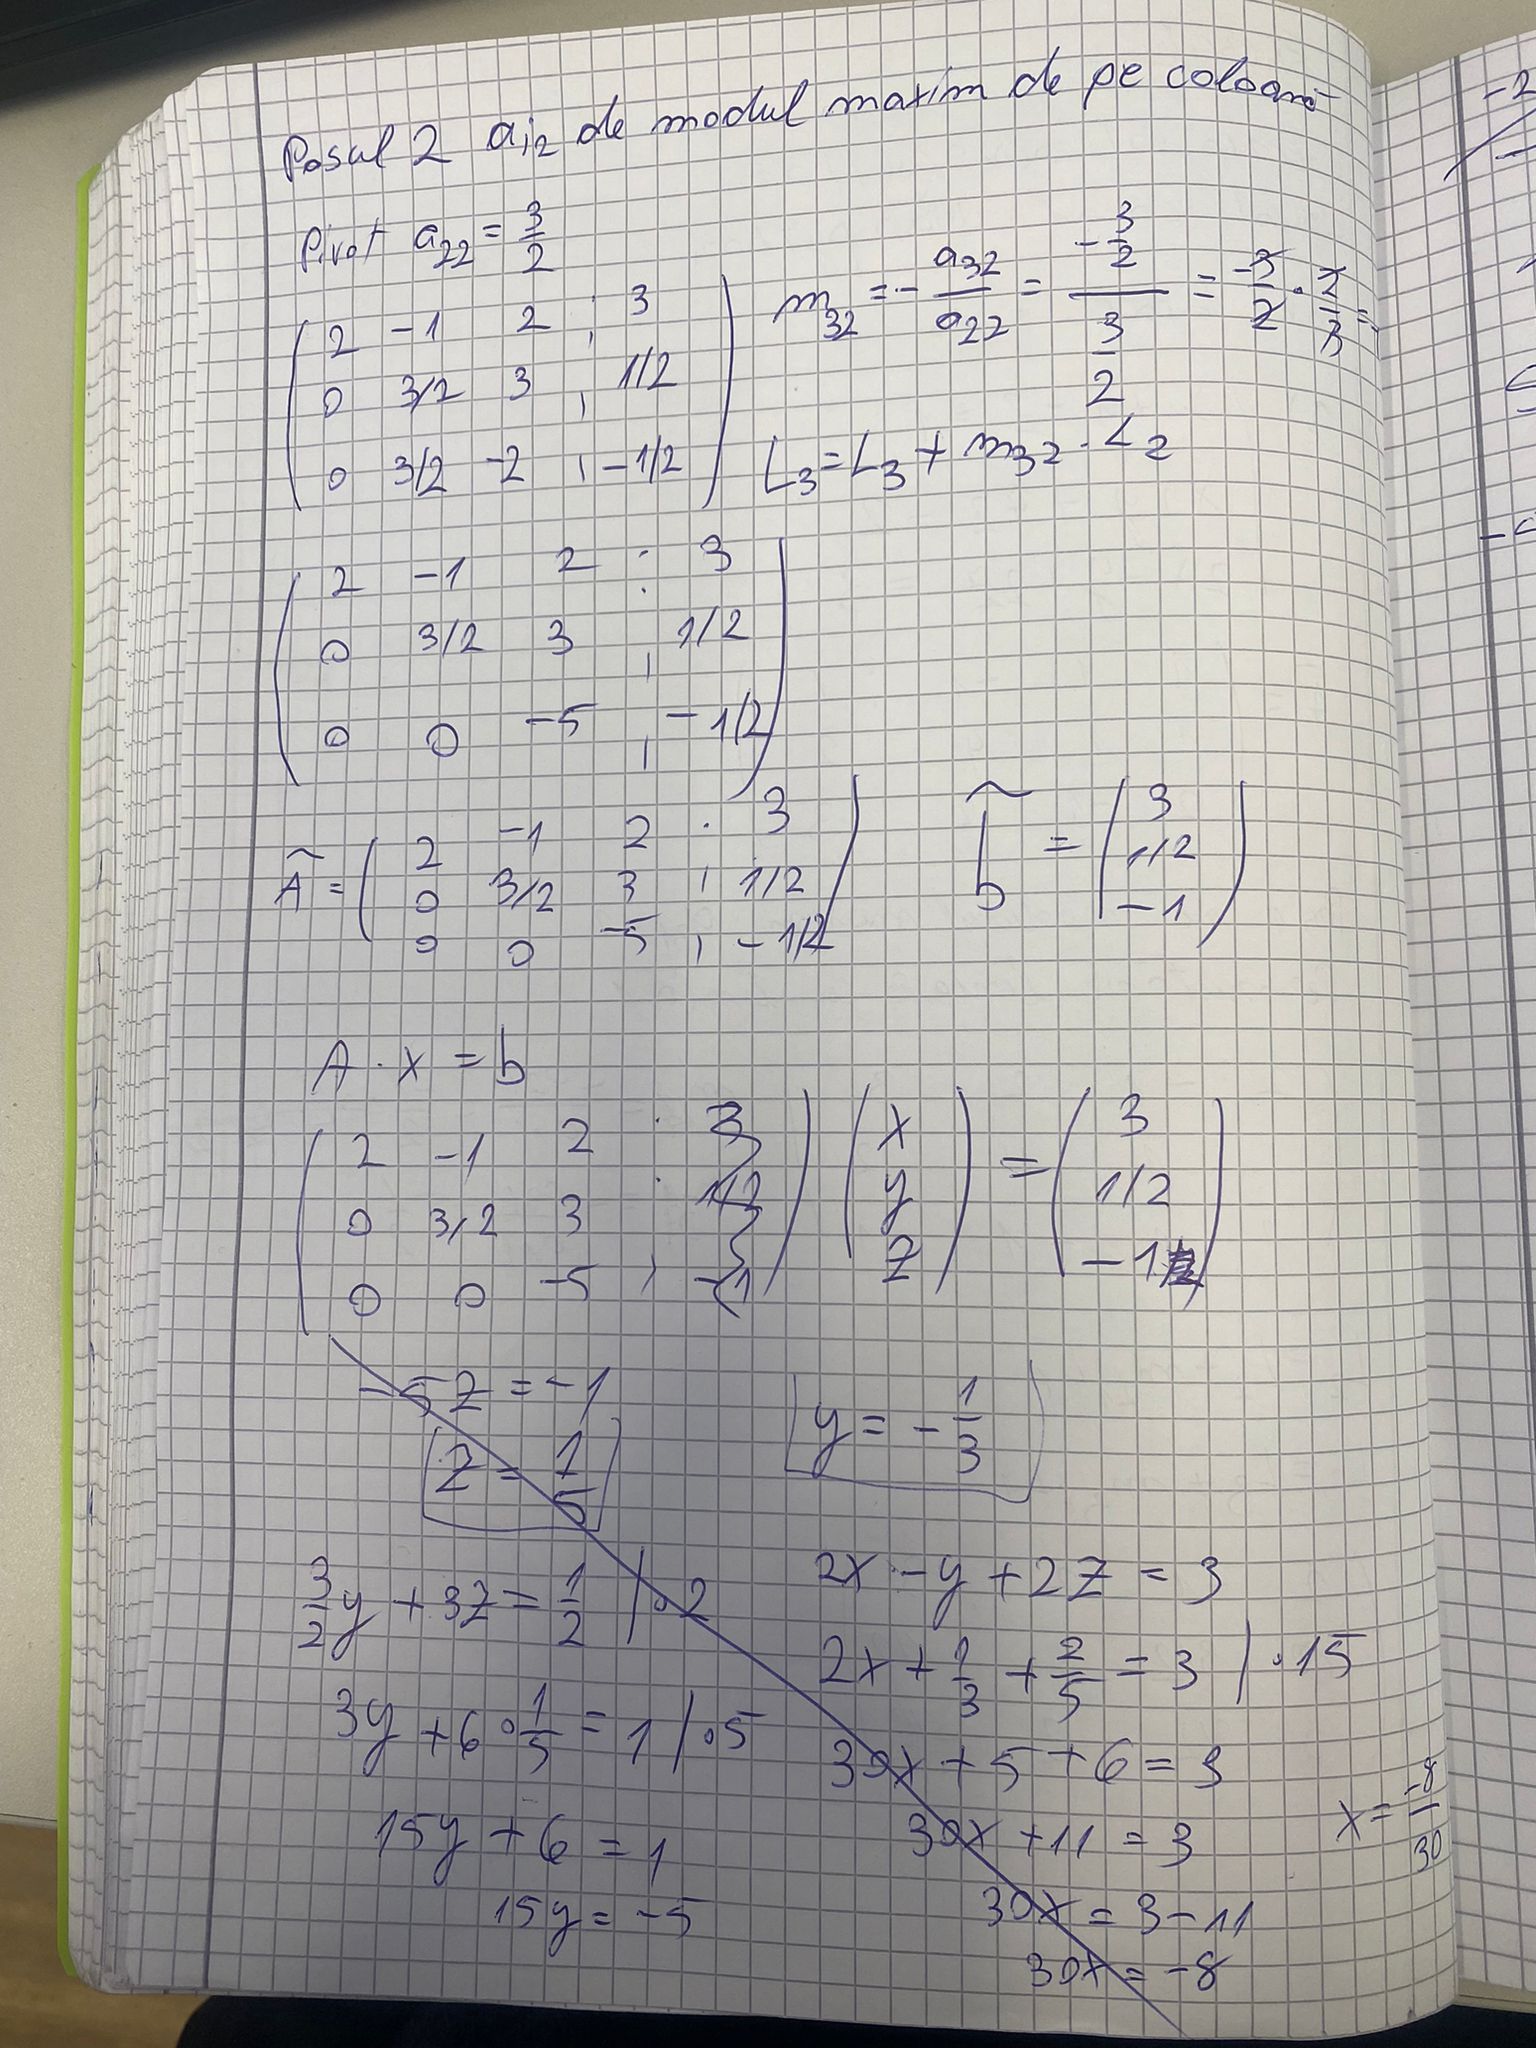 Pasul 2 ai2 de modul maxim de pe coloană
Pivot a22 = 3/2
( 2 -1 2 ; 3 )
( 0 3/2 3 , 1/2 )
( 0 3/2 -2 , -1/2 )
m32 = - a32/a22 = (-3/2)/(3/2) = -3/2 · 2/3 =
L3 = L3 + m32 · L2
( 2 -1 2 : 3 )
( 0 3/2 3 , 1/2 )
( 0 0 -5 , -1/2 )
Ã = ( 2 -1 2 . 3 )
( 0 3/2 3 , 1/2 )
( 0 0 -5 , -1/2 )
b̃ = ( 3 )
( 1/2 )
( -1 )
A · x = b
( 2 -1 2 . 3 ) ( x ) = ( 3 )
( 0 3/2 3 . 1/2 ) ( y ) ( 1/2 )
( 0 0 -5 , -1 ) ( z ) ( -1 )
-5z = -1
z = 1/5
3/2 y + 3z = 1/2 | · 2
3y + 6 · 1/5 = 1 | · 5
15y + 6 = 1
15y = -5
y = - 1/3
2x - y + 2z = 3
2x + 1/3 + 2/5 = 3 | · 15
30x + 5 + 6 = 3
30x + 11 = 3
30x = 3 - 11
30x = -8
x = -8/30